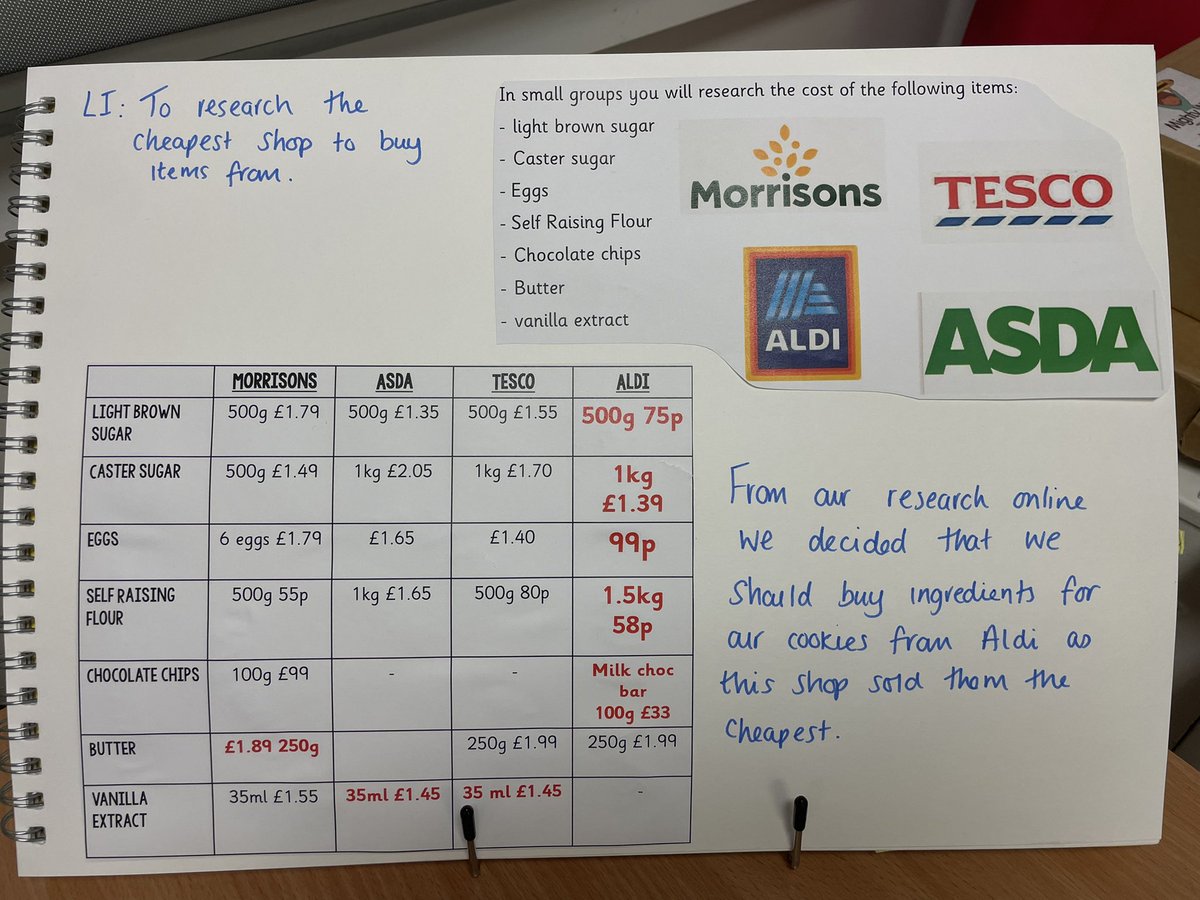 LI: To research the
cheapest shop to buy
items from.
In small groups you will research the cost of the following items:
- light brown sugar
- Caster sugar
- Eggs
- Self Raising Flour
- Chocolate chips
- Butter
- vanilla extract
Morrisons
TESCO
ALDI
ASDA
MORRISONS ASDA TESCO ALDI
LIGHT BROWN SUGAR 500g £1.79 500g £1.35 500g £1.55 500g 75p
CASTER SUGAR 500g £1.49 1kg £2.05 1kg £1.70 1kg £1.39
EGGS 6 eggs £1.79 £1.65 £1.40 99p
SELF RAISING FLOUR 500g 55p 1kg £1.65 500g 80p 1.5kg 58p
CHOCOLATE CHIPS 100g £99 - - Milk choc bar 100g £33
BUTTER £1.89 250g 250g £1.99 250g £1.99
VANILLA EXTRACT 35ml £1.55 35ml £1.45 35 ml £1.45 -
From our research online
we decided that we
should buy ingredients for
our cookies from Aldi as
this shop sold them the
cheapest.